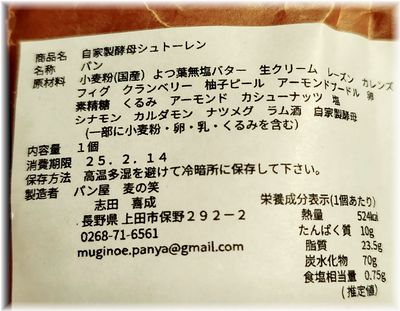 商品名 自家製酵母シュトーレン
名称 パン
原材料 小麦粉(国産) よつ葉無塩バター 生クリーム レーズン カレンズ
フィグ クランベリー 柚子ピール アーモンドプードル 卵
素精糖 くるみ アーモンド カシューナッツ 塩
シナモン カルダモン ナツメグ ラム酒 自家製酵母
(一部に小麦粉・卵・乳・くるみを含む)
内容量 1個
消費期限 25.2.14
保存方法 高温多湿を避けて冷暗所に保存して下さい。
製造者 パン屋 麦の笑
志田 喜成
長野県 上田市保野292-2
0268-71-6561
muginoe.panya@gmail.com
栄養成分表示(1個あたり)
熱量 524kcal
たんぱく質 10g
脂質 23.5g
炭水化物 70g
食塩相当量 0.75g
(推定値)